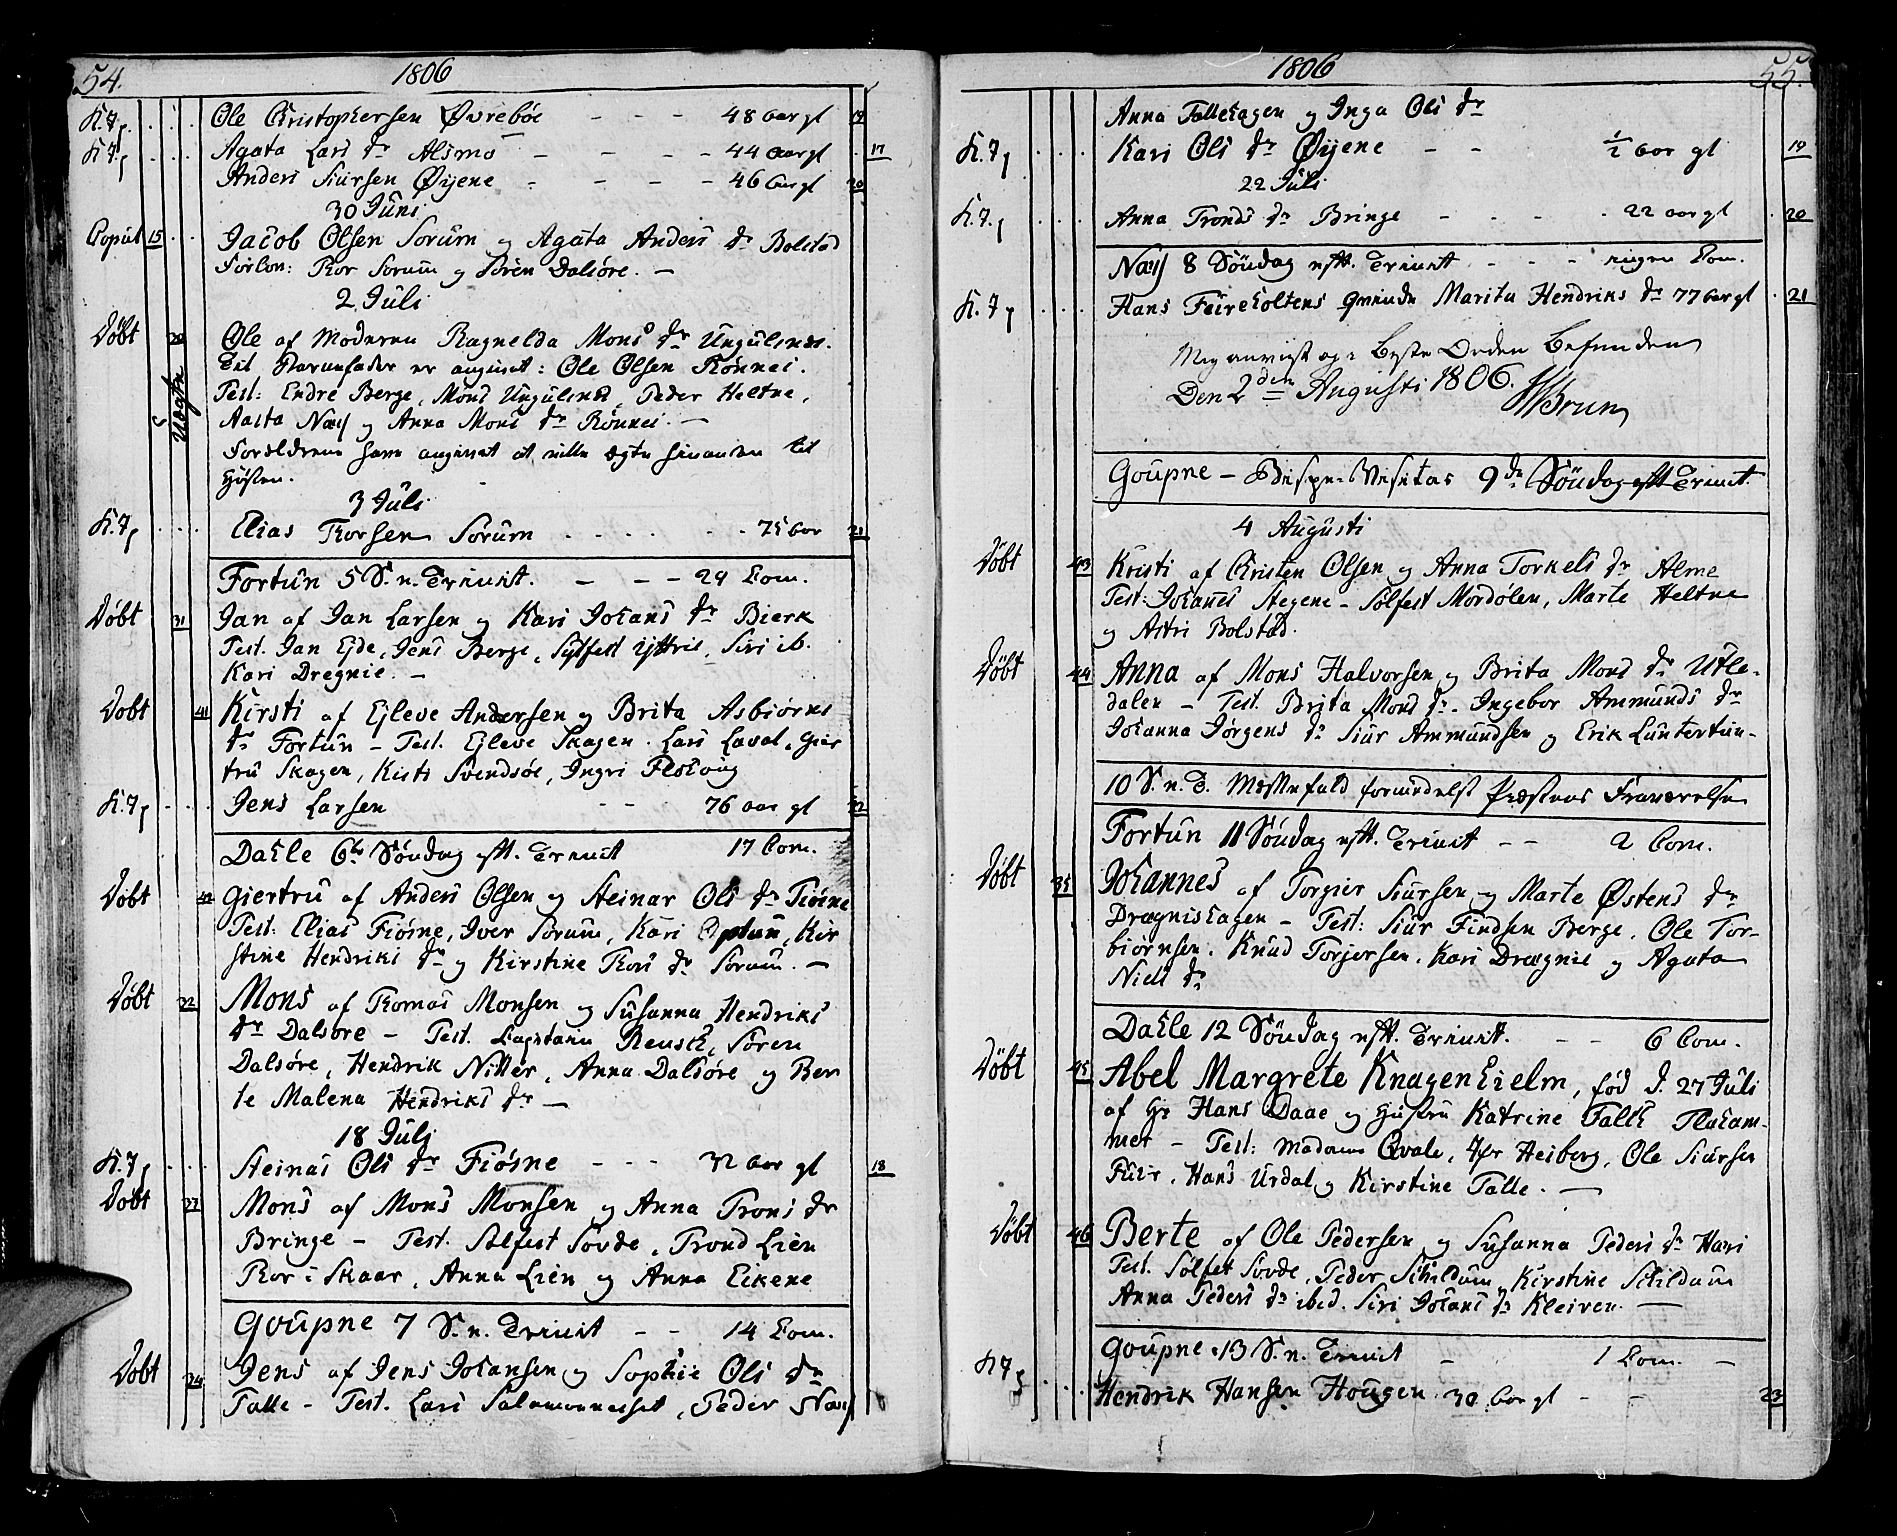 54. 1806
K. 7. Ole Christophersen Øvrebøe - - - 48 aar gl 19
K 7. Agata Lars dr Alsmo - - - - 44 aar gl 17
Anders Siursen Øÿene - - - - 46 aar gl 20
30 Juni
Copul 15 Jacob Olsen Sorum og Agata Anders dr Bolstad
Forlov: Thor Sorum og Sören Dalsöre. -
2 Juli
Döbt 30 Ole af Moderen Ragnelda Mons dr Ungulsnæs.
Til Barnefader er angivet: Ole Olsen Rönnei.
Uægte Test: Endre Berge, Mons Ungulsnes, Peder Heltne,
Aasta Næss og Anna Mons dr Rönnei. -
Forældrene have angivet at ville ægte hinanden til
Høsten.
3 Juli
K. 7. Elias Thorsen Sorum . . . . . 75 aar 21
Fortun 5 S. n. Trinit. - - - 29 Com.
Döbt 31 Jan af Jan Larsen og Kari Johans dr Bierk
Test. Jan Ejde, Jens Berge, Sylfest Yttrie, Siri ib.
Kari Dregnie. -
Döbt 41 Kirsti af Ejleve Andersen og Brita Asbiörns
dr Fortun - Test. Ejleve Skagen. Lars Laval, Gier
tru Skagen, Kisti Svendsöe, Ingri
K. 7. Jens Larsen - - 76 aar gl 22
Dahle 6te Söndag eft. Trinit 17 Com.
Döbt 42 Giertru af Anders Olsen og Steinar Ols dr Fiösne
Test: Elias Fiösne, Iver Sorum, Kari Optun, Kir
stine Hendriks dr og Kirstine Thors dr Sorum. -
Döbt 32 Mons af Thomas Monsen og Susanna Hendriks
dr Dalsöre - Test. Capitain Reusch, Sören
Dalsöre, Hendrik Nitter, Anna Dalsöre og Ber
te Malena Hendriks dr -
18 Juli
K. 7. Steinas Ols dr Fiösne - - - 32 aar gl 18
Döbt 33 Mons af Mons Monsen og Anna Trons dr
Bringe - Test. Solfest Sovde, Trond Lien
Thor i Skaar, Anna Lien og Anna Eikene
Goupne 7 S. n. Trinit - - 14 Com.
Döbt 34 Jens af Jens Johansen og Sophie Ols dr
Talle - Test. Lars, Peder Næss
1806 55.
Anna Tallehagen og Inga Ols dr
K. 7. Kari Ols dr Øÿene - - 1/2 aar gl 19
22 Juli
K. 7. Anna Tronds dr Bringe - - - - 22 aar gl 20
Næss 8 Söndag eft. Trinit - - - ingen Com.
K. 7. Hans Feireholtens qvinde Marita Hendriks dr 77 aar gl 21
Mig anvist og i Beste Orden Befunden
Den 2den Augusti 1806. Brun
Goupne - Bispe-Visitas 9de Söndag eft Trinit.
4 Augusti
Döbt 43 Kristi af Christen Olsen og Anna Torkels dr Alme
Test: Johannes Stegene - Solfest Mordölen, Marte Heltne
og Astri Bolstad.
Döbt 44 Anna af Mons Halvorsen og Brita Mons dr Utle-
dalen - Test. Brita Mons dr. Ingebor Ammunds dr
Johanna Jörgens dr Siur Ammundsen og Erik Luntertun-
10 S. n. T. Messefald formedelst Præstens Fraværelse
Fortun 11 Söndag eft. Trinit - - 2 Com.
Döbt 35 Johannes af Torgier Siursen og Marte Østens dr
Drægnishagen - Test: Siur Findsen Berge, Ole Tor-
biörnsen. Knud Torjersen. Kari Drægnie og Agata
Niels dr
Dahle 12 Söndag eft. Trinit. - - 6 Com.
Döbt 45 Abel Margrete Knagenhielm, fød d. 27 Juli
af Hr Hans Daae og Hustru Katrine Falck
mer - Test: Madame Qvale, Jfr Heiberg, Ole Siursen
Fuur, Hans Urdal og Kirstine Talle. -
Döbt 46 Berte af Ole Pedersen og Susanna Peders dr Hari
Test. Solfest Sovde, Peder Skildum, Kirstine Skildum
Anna Peders dr ibid. Siri Johans dr Kleiven. -
Goupne 13 S. n. Trinit - 1 Com. -
K 7. Hendrik Hansen Hougen 30 aar gl - - 23